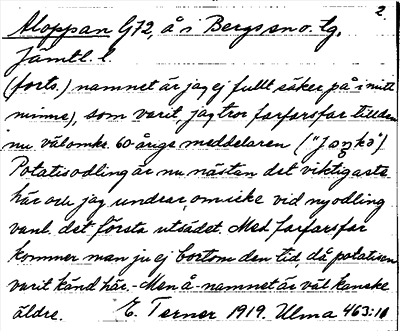 2.
Aloppan G72, å i Bergs sn o. tg,
Jämtl. l.
(forts.) namnet är jag ej fullt säker på i mitt
minne), som varit, jag tror farfarsfar till den
nu välomke. 60-årige meddelaren
Potatisodling är nu nästan det viktigaste
här och jag undrar, om icke vid nyodling
vanl. det första utsädet. Med farfarsfar
kommer man ju ej bortom den tid, då potatisen
varit känd här. - Men å-namnet är väl kanske
äldre. E. Terner 1919. Ulma 463:10